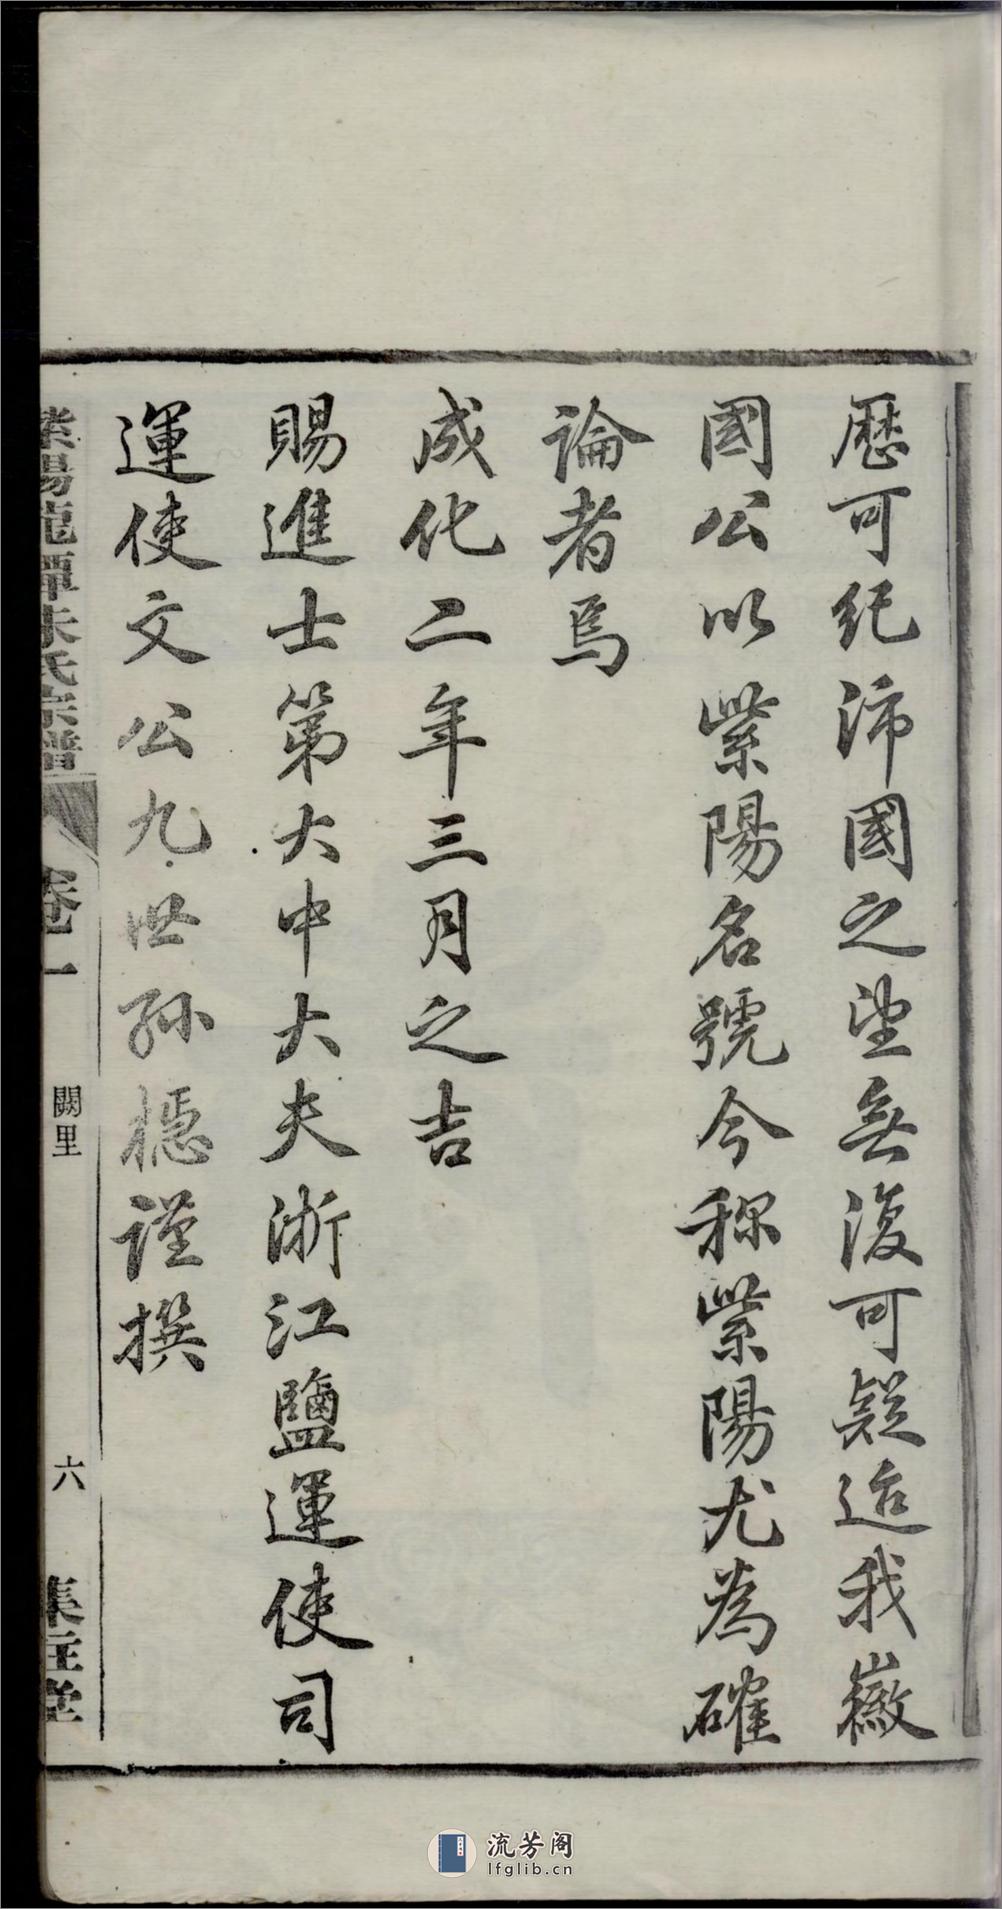 歷可紀沛國之望無復可疑迨我徽
國公以紫陽名號今称紫陽尤為確
論者焉
成化二年三月之吉
賜進士第大中大夫浙江鹽運使司
運使文公九世孫穩謹撰
紫陽龍潭朱氏宗譜
卷一
闕里
六
集註堂
流芳阁
lfglib.cn